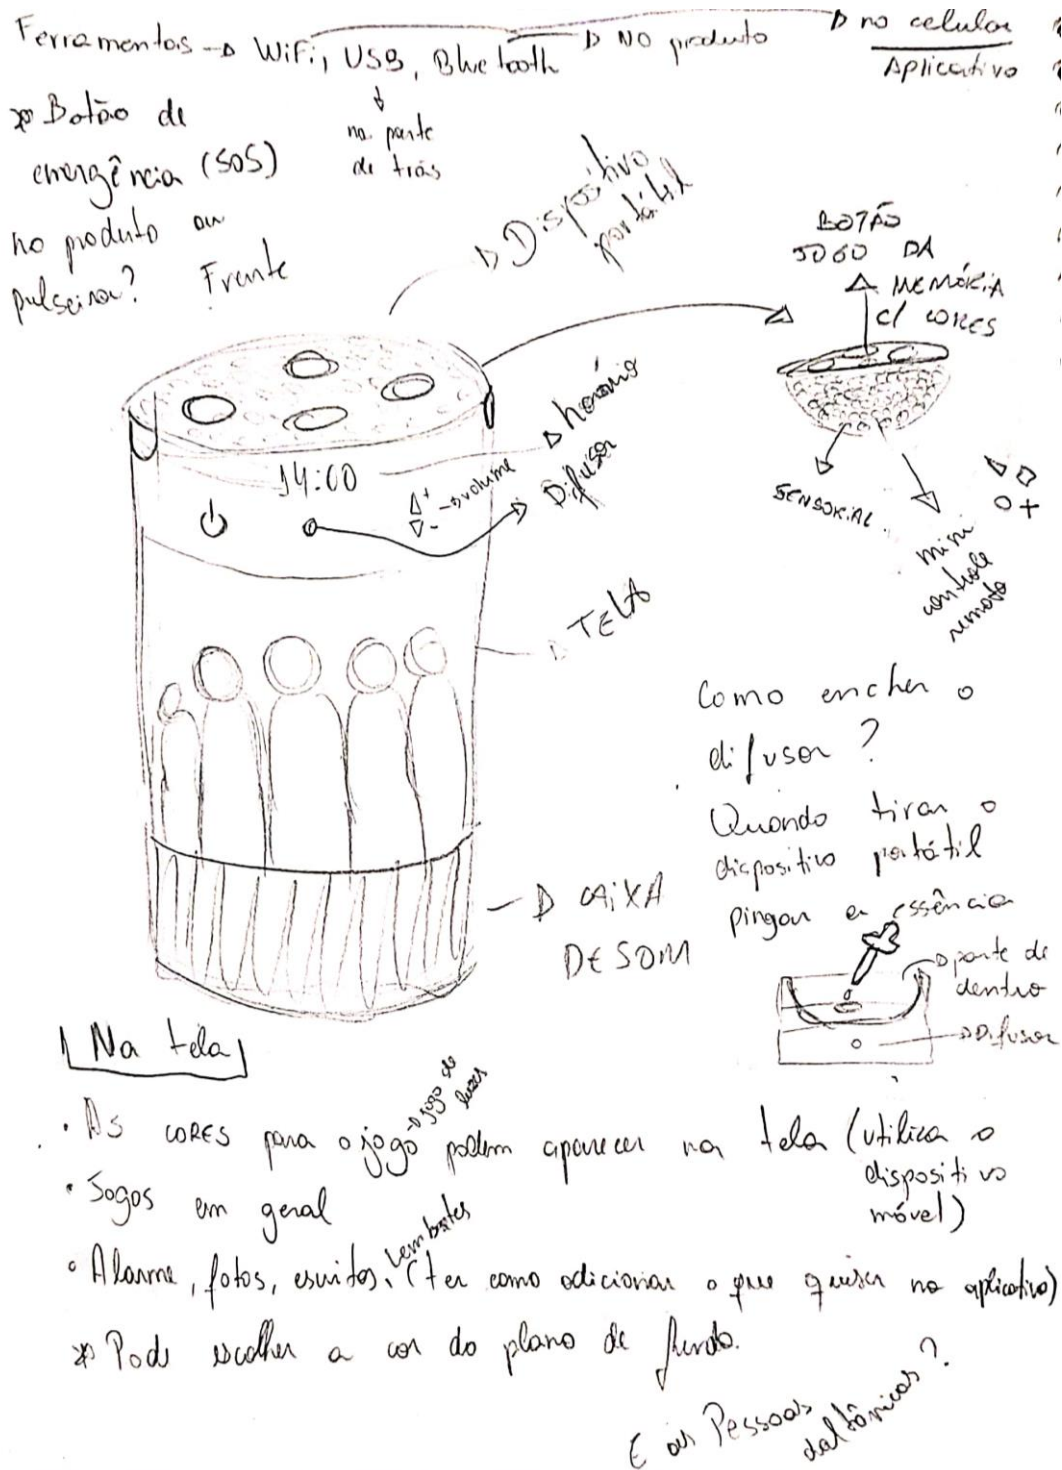 Ferramentas → WiFi, USB, Bluetooth
→ NO produto
→ no celular
Aplicativo
↓
na parte
de trás
* Botão de
emergência (SOS)
no produto ou
pulseira?
Frente
→ Dispositivo
portátil
BOTÃO
JOGO DA
MEMÓRIA
C/ CORES
SENSORIAL
mini
controle
remoto
14:00
→ horário
+ → volume
-
→ Difusor
→ TELA
→ CAIXA
DE SOM
Como encher o
difusor?
Quando tirar o
dispositivo portátil
pingar a essência
→ parte de
dentro
→ Difusor
Na tela
• AS CORES para o jogo podem aparecer na tela (utiliza o
dispositivo
móvel)
→ jogo de
luzes
• Jogos em geral
• Alarme, fotos, escritos, lembretes (ter como adicionar o que quiser no aplicativo)
* Pode escolher a cor do plano de fundo.
E as Pessoas
daltônicas?